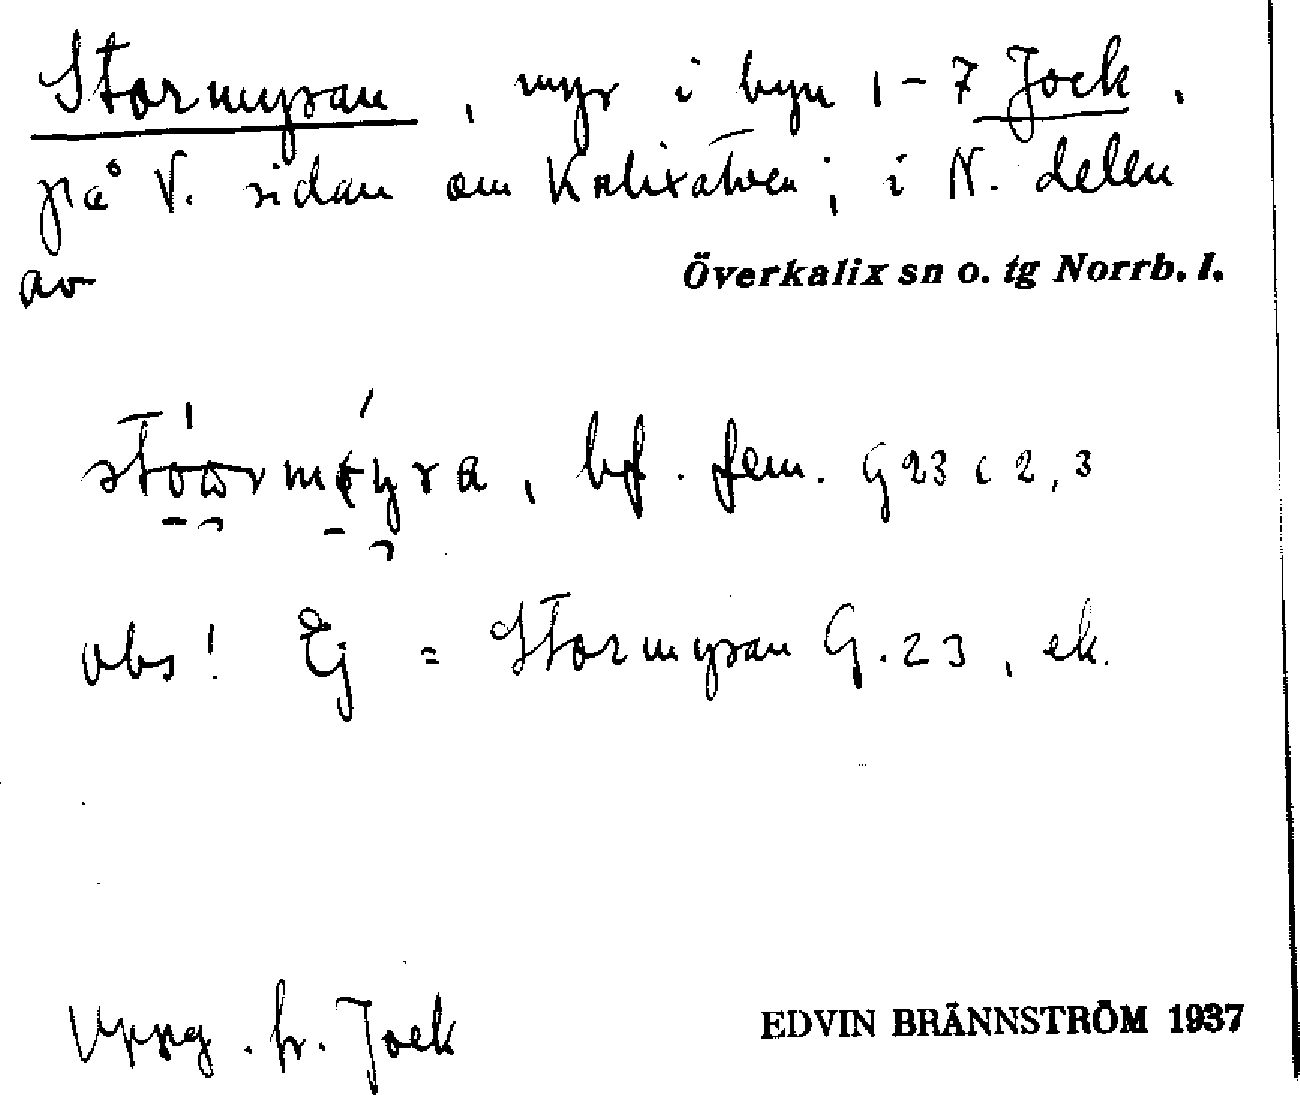 Stormyran, myr i byn 1-7 Jock,
på V. sidan om Kalixälven, i N. delen
av Överkalix sn o. tg Norrb. l.
bf. fem. G 23 c 2, 3
obs! Ej = Stormyran G. 23, ek.
Uppg. fr. Jock
EDVIN BRÄNNSTRÖM 1937